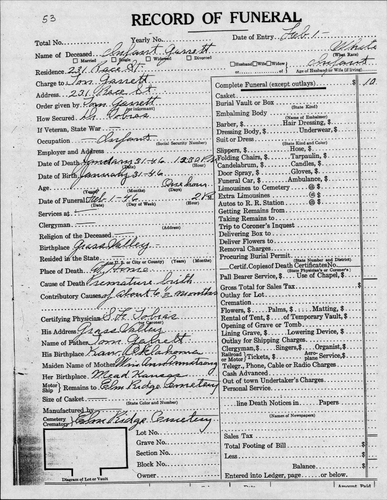 53
RECORD OF FUNERAL
Total No. Yearly No. Date of Entry Feb. 1 -
Name of Deceased Infant Garrett White
Married Single Widowed Divorced (What Race)
Residence 231 Race St. Husband Wife Widow of Infant
Charge to Tom Garrett Age of Husband or Wife (if living)
Address 231 Race St
Order given by Tom Garrett
How Secured Dr. Tobias
If Veteran, State War
Occupation Infant (Social Security Number)
Employer and Address
Date of Death January 31-46 12:30 P.
Date of Birth January 31-46
Age One hour
(Years) (Months) (Days)
Date of Funeral Feb 1-46 2 P.
(Date) (Day of Week) (Hour)
Services at
Clergyman
Religion of the Deceased
Birthplace Grass Valley
Resided in the State
(U.S. or City or County) (Years, Months)
Place of Death Home
Cause of Death Premature birth
Contributory Causes of about 6 months
Certifying Physician S. H. Tobias
His Address Grass Valley
Name of Father Tom Garrett
His Birthplace Oklahoma
Maiden Name of Mother Armstrong
Her Birthplace Mead Kansas
Motor Ship Remains to Elm Ridge Cemetery
Size of Casket
(State Color and Number)
Manufactured by
Cemetery Crematory Elm Ridge Cemetery
Lot No.
Grave No.
Section No.
Block No.
Owner
Diagram of Lot or Vault
Complete Funeral (except outlays) $ 10
Casket
Burial Vault or Box
(State Kind)
Embalming Body
Barber, $ Hair Dressing, $
Dressing Body, $ Underwear, $
Suit or Dress
(State Kind and Color)
Slippers, $ Hose, $
Folding Chairs, $ Tarpaulin, $
Candelabrum, $ Candles, $
Door Spray, $ Gloves, $
Funeral Car, $ Ambulance, $
Limousines to Cemetery @ $
Extra Limousines @ $
Autos to R. R. Station @ $
Getting Remains from
Taking Remains to
Trip to Coroner's Inquest
Delivering Box to
Deliver Flowers to
Removal Charges
Procuring Burial Permit
(State Number and District)
Certif. Copies of Death Certificates No.
(State Physician's or Coroner's)
Pall Bearer Service, $ Use of Chapel, $
Gross Total for Sales Tax $
Outlay for Lot
Cremation
Flowers, $ Palms, $ Matting, $
Rental of Tent, $ of Temporary Vault, $
Opening of Grave or Tomb
Lining Grave, $ Lowering Device, $
Outlay for Shipping Charges
Clergyman, $ Singers, $ Organist, $
Railroad or Motor Tickets, $ Aeroplane Service, $
Telegr., Phone, Cable or Radio Charges
Cash Advanced
Out of town Undertaker's Charges
Personal Service
line Death Notices in Papers
(Names of Newspapers)
Sales Tax
Total Footing of Bill $
Less
Balance
Entered into Ledger, page or below.
Amount Paid